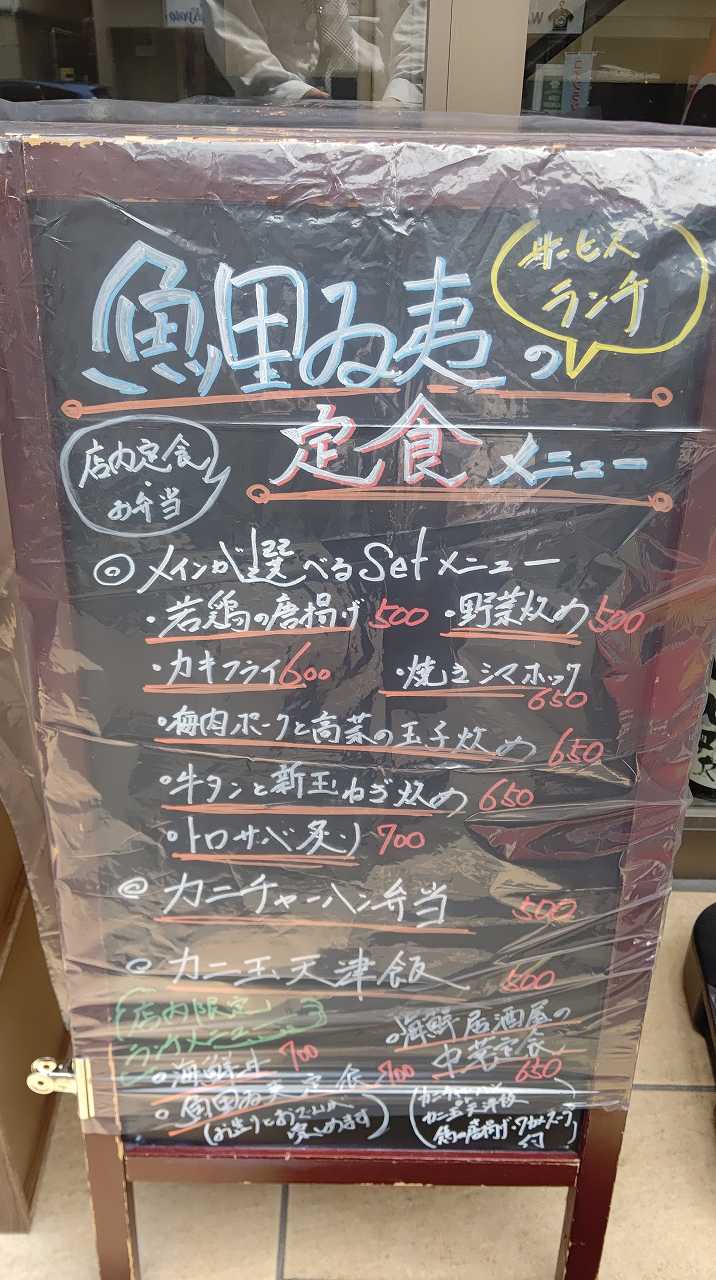 サービス
ランチ
魚里ゐ夷の
定食メニュー
店内定食
・
お弁当
◎メインが選べるSetメニュー
・若鶏の唐揚げ 500 ・野菜炒め 500
・カキフライ 600 ・焼きシマホッケ 650
・梅肉ポークと高菜の玉子炒め 650
・牛タンと新玉ねぎ炒め 650
・トロサバ炙り 700
◎カニチャーハン弁当 500
◎カニ玉天津飯 500
店内限定
ランチメニュー
◦海鮮丼 700
◦魚里ゐ夷定食 700
(お造りとおでんが
楽しめます)
◦海鮮居酒屋の
中華定食 650
カニ玉天津飯
鶏の唐揚げ・ワカメスープ
付